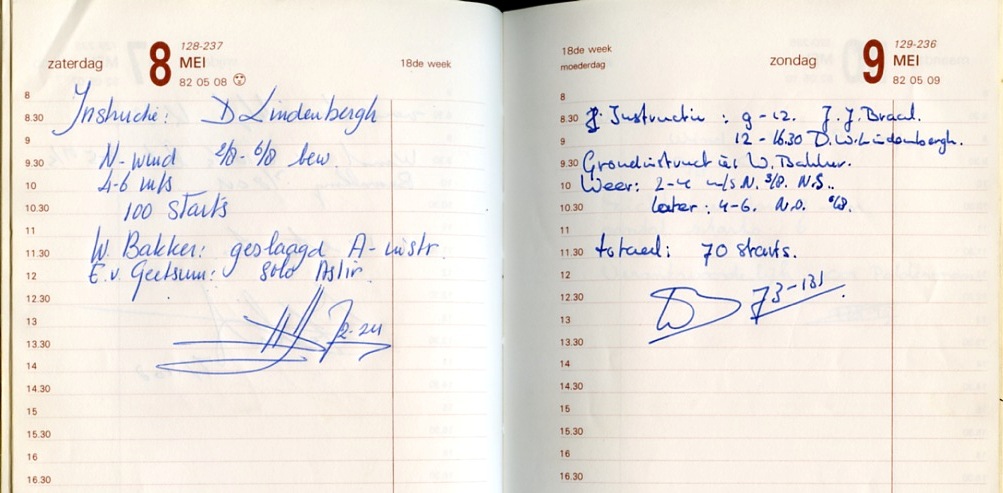 zaterdag 8 128-237
MEI
82 05 08
18de week
8
8.30
9
9.30
10
10.30
11
11.30
12
12.30
13
13.30
14
14.30
15
15.30
16
16.30
Instructie: D Lindenbergh
N-wind 2/8-6/8 bew.
4-6 m/s
100 starts
W. Bakker: geslaagd A-instr.
E.v. Geetsum: solo Astir.
18de week
moederdag
zondag 9 129-236
MEI
82 05 09
8
8.30
9
9.30
10
10.30
11
11.30
12
12.30
13
13.30
14
14.30
15
15.30
16
16.30
Instructie: 9-12. J.J.
12-16.30 D.W. Lindenbergh.
Grondinstructie W. Bakker.
Weer: 2-4 m/s N. 3/8. N.S..
Later: 4-6. N.O. 6/8.
totaal: 70 starts.
73-131